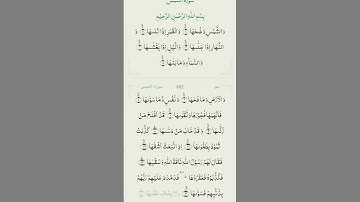 سورة الشمس
بِسْمِ اللّٰهِ الرَّحْمٰنِ الرَّحِيْمِ
وَالشَّمْسِ وَضُحٰىهَا ۝ وَالْقَمَرِ اِذَا تَلٰىهَا ۝ وَ
النَّهَارِ اِذَا جَلّٰىهَا ۝ وَالَّيْلِ اِذَا يَغْشٰىهَا ۝
وَالسَّمَآءِ وَمَا بَنٰىهَا ۝
سورة الشمس
وَالْاَرْضِ وَمَا طَحٰىهَا ۝ وَنَفْسٍ وَّمَا سَوّٰىهَا ۝
فَاَلْهَمَهَا فُجُوْرَهَا وَتَقْوٰىهَا ۝ قَدْ اَفْلَحَ مَنْ
زَكّٰىهَا ۝ وَقَدْ خَابَ مَنْ دَسّٰىهَا ۝ كَذَّبَتْ
ثَمُوْدُ بِطَغْوٰىهَا ۝ اِذِ انْۢبَعَثَ اَشْقٰىهَا ۝
فَقَالَ لَهُمْ رَسُوْلُ اللّٰهِ نَاقَةَ اللّٰهِ وَسُقْيٰهَا ۝
فَكَذَّبُوْهُ فَعَقَرُوْهَا فَدَمْدَمَ عَلَيْهِمْ رَبُّهُمْ
بِذَنْۢبِهِمْ فَسَوّٰىهَا ۝ وَلَا يَخَافُ عُقْبٰهَا ۝